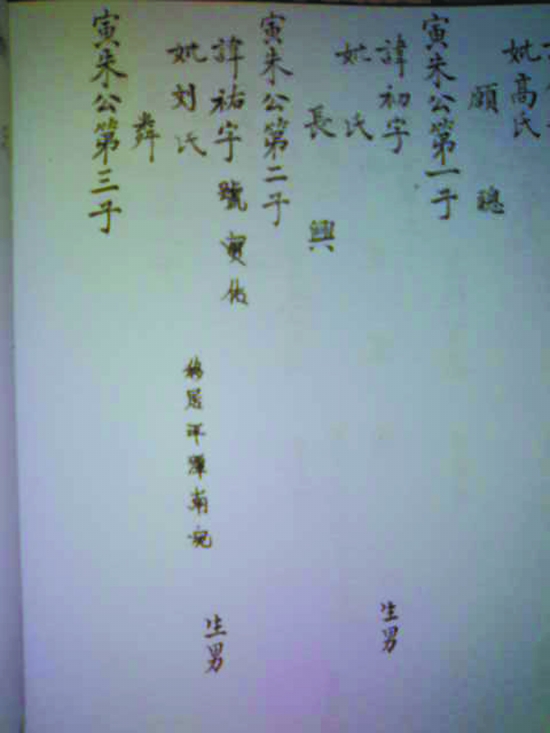 妣高氏
願 聰
寅朱公第一子
諱初字
妣 氏 生男
長 興
寅朱公第二子
諱祐字 號
妣刘氏 移居洋潭南 生男
寅朱公第三子